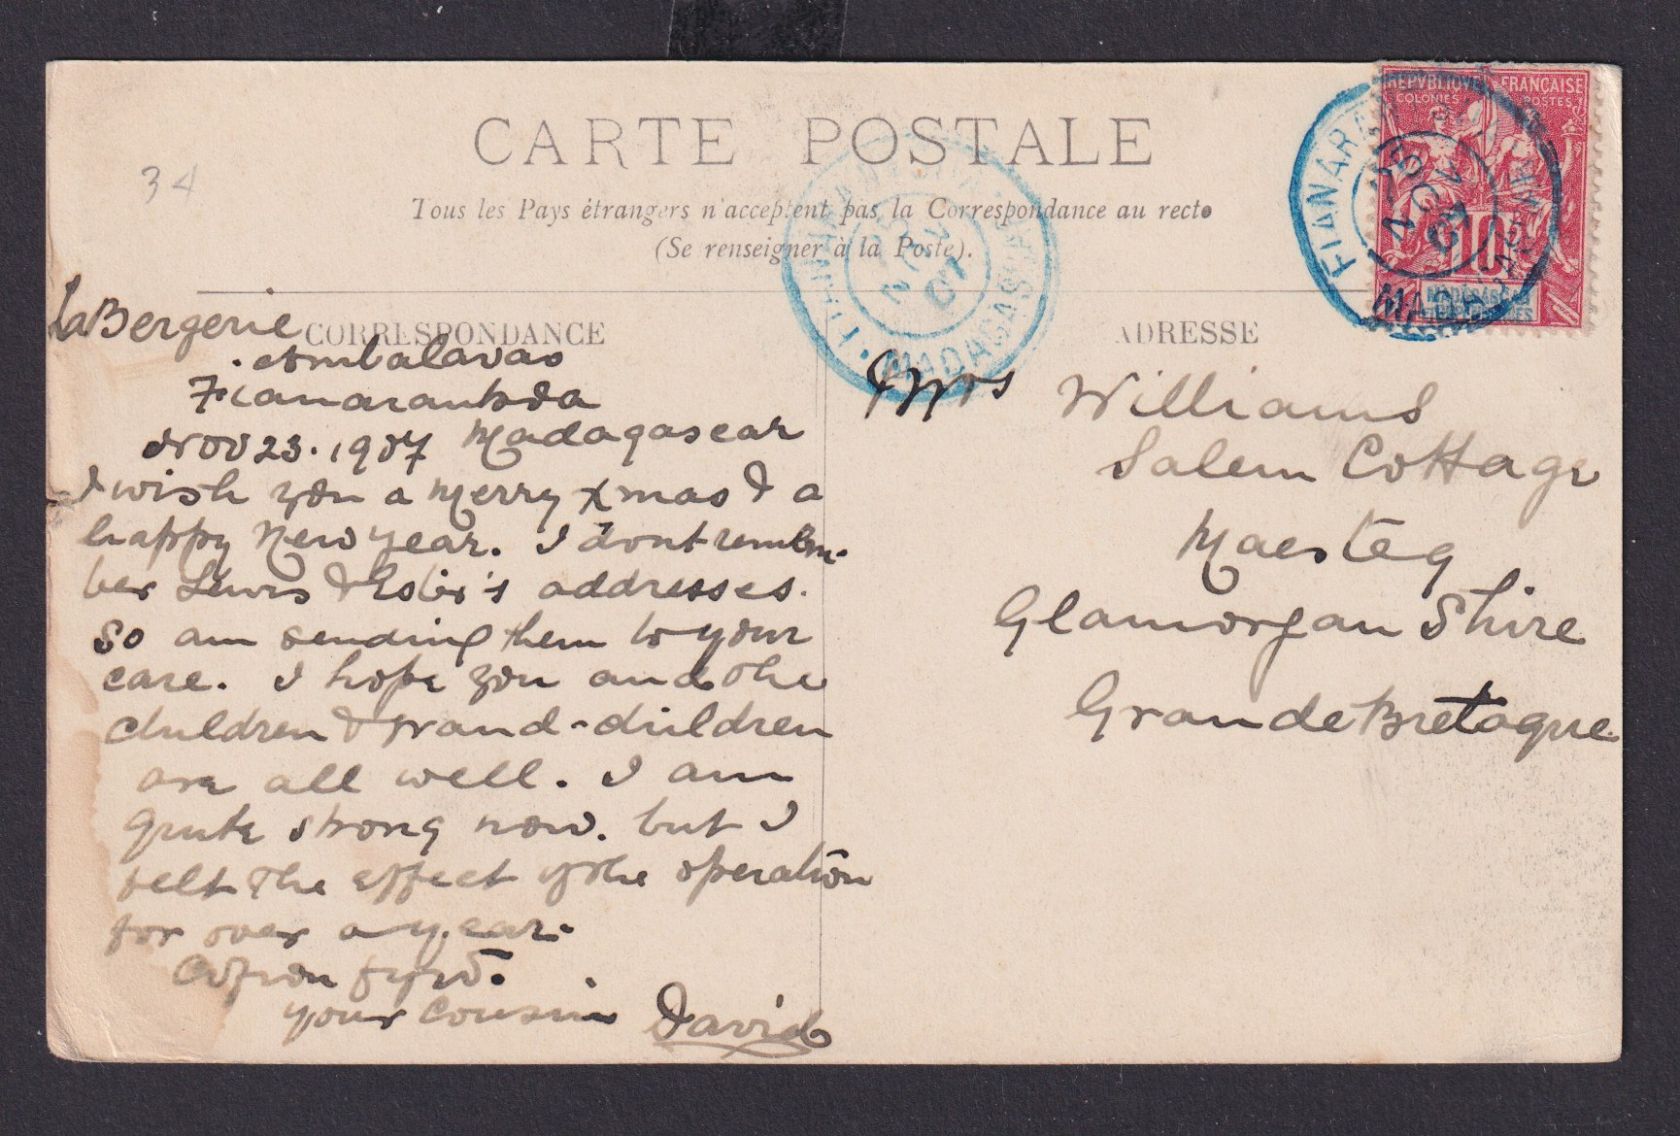 34
CARTE POSTALE
Tous les Pays étrangers n'acceptent pas la Correspondance au recto
(Se renseigner à la Poste).
CORRESPONDANCE
ADRESSE
REPVBLIQVE FRANÇAISE
COLONIES POSTES
10
FIANAR
MADAGASCAR
MADAGASCAR
NOV
07
La Bergerie
Ambalavao
Fianarantsoa
Nov 23. 1907 Madagascar
I wish you a Merry Xmas & a
happy New year. I dont remem-
ber Lewis & Estir's addresses.
So am sending them to your
care. I hope you and the
children & grand-children
are all well. I am
quite strong now. but I
felt the effect of the operation
for over a year.
Cofion fyrd.
your cousin David
Mrs Williams
Salem Cottage
Maesteg
Glamorgan Shire
Grande Bretagne